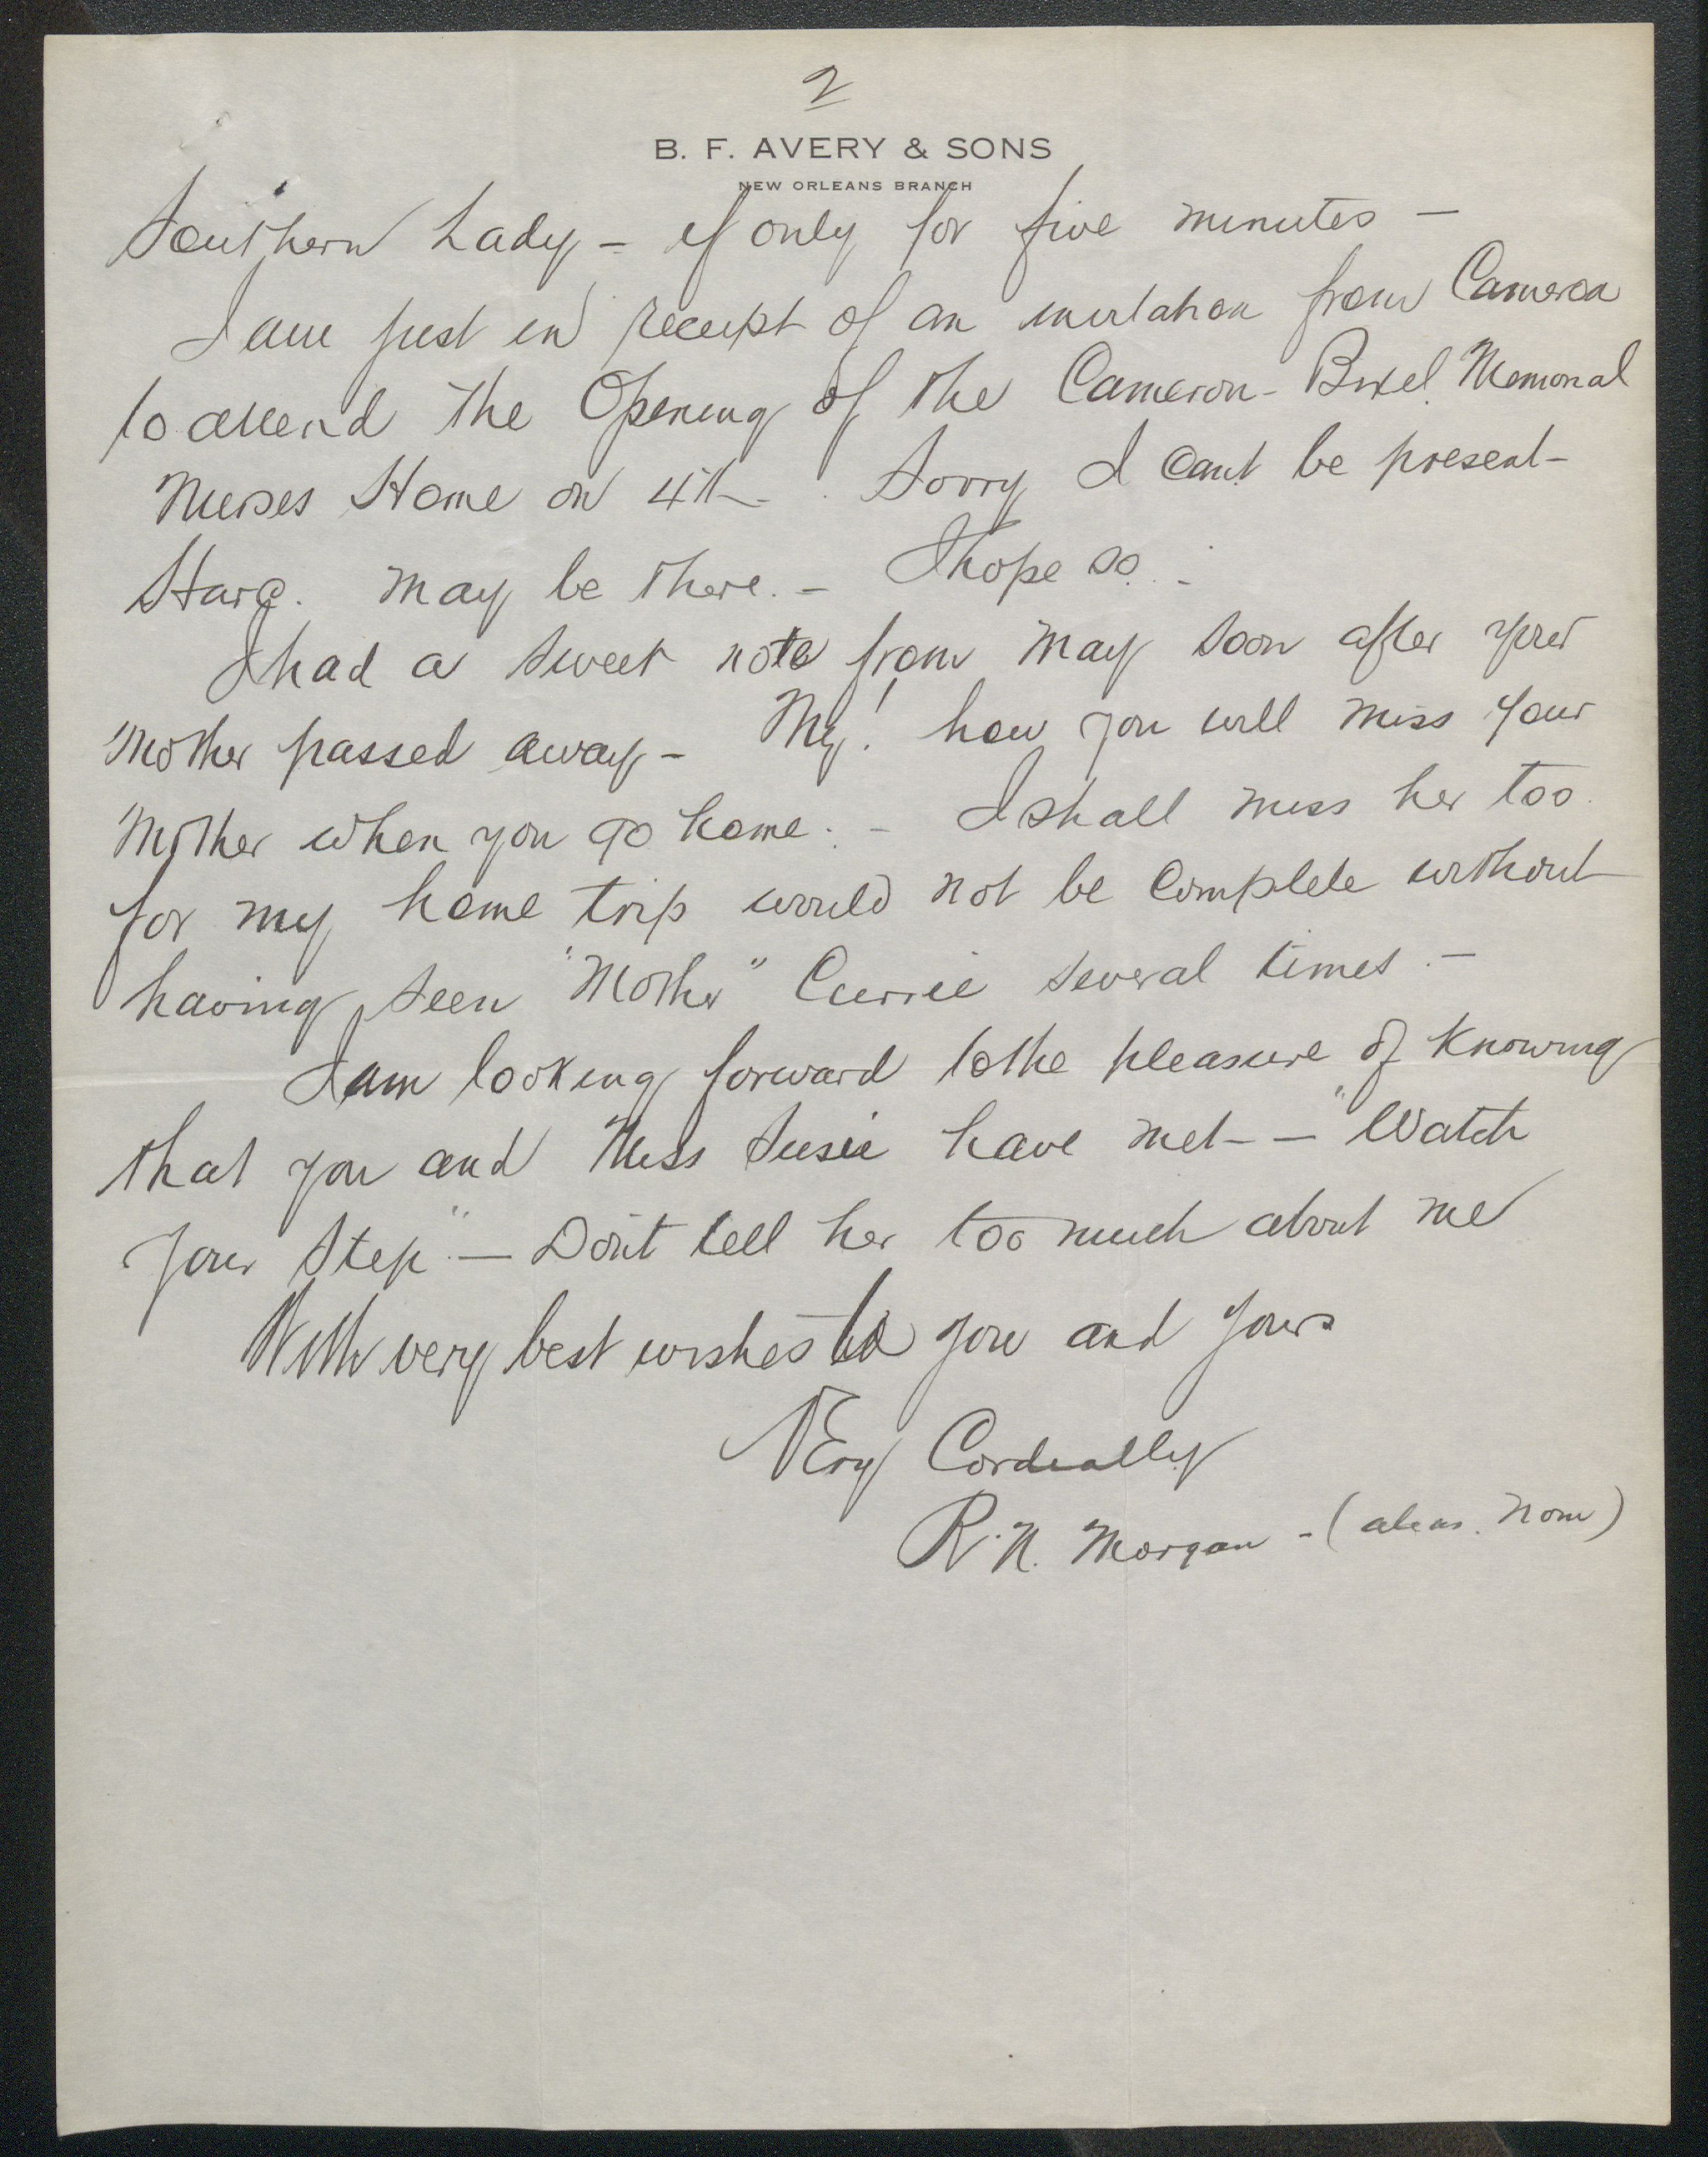 2
B. F. AVERY & SONS
NEW ORLEANS BRANCH
Southern Lady - if only for five minutes -
I am just in receipt of an invitation from Cameron
to attend the Opening of the Cameron - Bixel Memorial
Nurses Home on 4th. Sorry I can't be present -
may be there. - I hope so. -
I had a sweet note from May soon after your
Mother passed away - My! how you will miss your
Mother when you go home. - I shall miss her too.
for my home trip would not be complete without
having seen "Mother" Currie several times. -
I am looking forward to the pleasure of knowing
that you and Miss Susie have met - - "Watch
your Step" - Don't tell her too much about me
With very best wishes to you and yours
Very Cordially
R. N. Morgan - (alias. Nom)